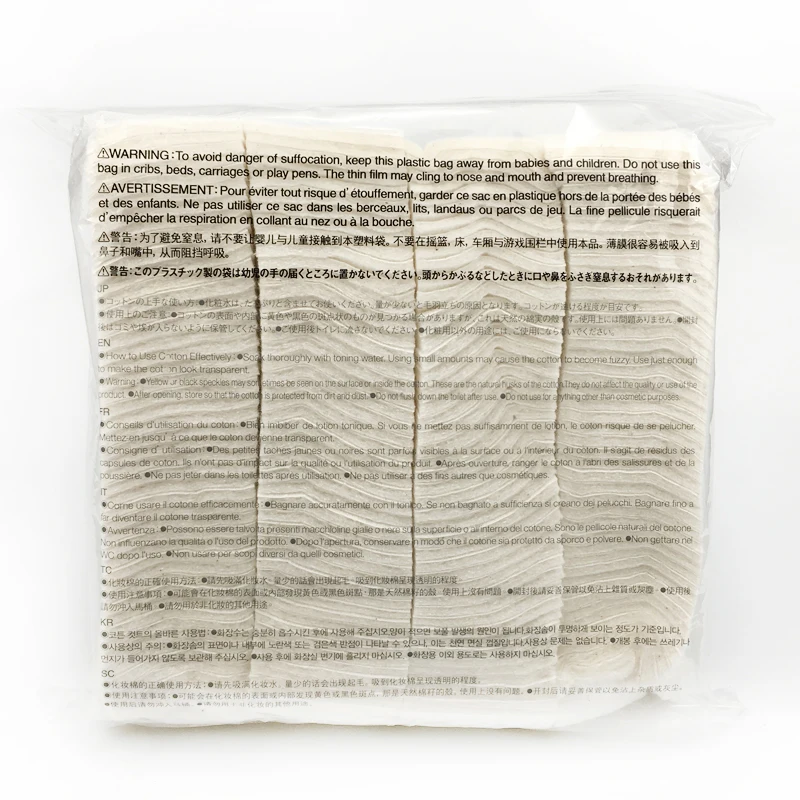 ⚠WARNING:To avoid danger of suffocation, keep this plastic bag away from babies and children. Do not use this
bag in cribs, beds, carriages or play pens. The thin film may cling to nose and mouth and prevent breathing.
⚠AVERTISSEMENT:Pour éviter tout risque d'étouffement, garder ce sac en plastique hors de la portée des bébés
et des enfants. Ne pas utiliser ce sac dans les berceaux, lits, landaus ou parcs de jeu. La fine pellicule risquerait
d'empêcher la respiration en collant au nez ou à la bouche.
⚠警告:为了避免窒息,请不要让婴儿与儿童接触到本塑料袋。不要在摇篮,床,车厢与游戏围栏中使用本品。薄膜很容易被吸入到
鼻子和嘴中,从而阻挡呼吸。
⚠警告:このプラスチック製の袋は幼児の手の届くところに置かないでください。頭からかぶるなどしたときに口や鼻をふさぎ窒息するおそれがあります。
JP
●コットンの上手な使い方:●化粧水は、たっぷりと含ませてお使いください。量が少ないと毛羽立ちの原因となります。コットンが透ける程度が目安です。
●使用上のご注意:●コットンの表面や内部に黄色や黒色の斑点状のものが見つかる場合がありますが、これは天然の綿実の殻です。使用上には問題ありません。●開封
後はゴミや埃が入らないように保管してください。●ご使用後トイレに流さないでください。●化粧用以外の用途には、ご使用にならないでください。
EN
●How to Use Cotton Effectively:●Soak thoroughly with toning water. Using small amounts may cause the cotton to become fuzzy. Use just enough
to make the cotton look transparent.
●Warning:●Yellow or black speckles may sometimes be seen on the surface or inside the cotton. These are the natural husks of the cotton.They do not affect the quality or use of the
product. ●After opening, store so that the cotton is protected from dirt and dust. ●Do not flush down the toilet after use. ●Do not use for anything other than cosmetic purposes.
FR
●Conseils d'utilisation du coton:●Bien imbiber de lotion tonique. Si vous ne mettez pas suffisamment de lotion, le coton risque de se pelucher.
Mettez-en jusqu'à ce que le coton devienne transparent.
●Consigne d'utilisation:●Des petites taches jaunes ou noires sont parfois visibles à la surface ou à l'intérieur du coton. Il s'agit de résidus des
capsules de coton. Ils n'ont pas d'impact sur la qualité ou l'utilisation du produit. ●Après ouverture, ranger le coton à l'abri des salissures et de la
poussière. ●Ne pas jeter dans les toilettes après utilisation. ●Ne pas utiliser à des fins autres que cosmétiques.
IT
●Come usare il cotone efficacemente:●Bagnare accuratamente con il tonico. Se non bagnato a sufficienza si creano dei pelucchi. Bagnare fino a
far diventare il cotone trasparente.
●Avvertenza:●Possono essere talvolta presenti macchioline gialle o nere sulla superficie o all'interno del cotone. Sono le pellicole naturali del cotone.
Non influenzano la qualità o l'uso del prodotto. ●Dopo l'apertura, conservare in modo che il cotone sia protetto da sporco e polvere. ●Non gettare nel
WC dopo l'uso. ●Non usare per scopi diversi da quelli cosmetici.
TC
●化妝棉的正確使用方法:●請先吸滿化妝水,量少的話會出現起毛。吸到化妝棉呈現透明的程度。
●使用注意事項:●可能會在化妝棉的表面或內部發現黃色或黑色斑點,那是天然棉籽的殼,使用上沒有問題。●開封後請妥善保管以免沾上雜質或灰塵。●使用後
請勿沖入馬桶。●請勿用於非化妝的其他用途。
KR
●코튼 컷트의 올바른 사용법:●화장수는 충분히 흡수시킨 후에 사용해 주십시오.양이 적으면 보풀 발생의 원인이 됩니다.화장솜이 투명하게 보이는 정도가 기준입니다.
●사용상의 주의:●화장솜의 표면이나 내부에 노란색 또는 검은색 반점이 나타날 수 있으나, 이는 천연 면실 껍질입니다.사용상 문제는 없습니다. ●개봉 후에는 쓰레기나
먼지가 들어가지 않도록 보관해 주십시오. ●사용 후에 화장실 변기에 흘리지 마십시오. ●화장용 이외 용도로는 사용하지 마십시오.
SC
●化妆棉的正确使用方法:●请先吸满化妆水,量少的话会出现起毛。吸到化妆棉呈现透明的程度。
●使用注意事项:●可能会在化妆棉的表面或内部发现黄色或黑色斑点,那是天然棉籽的壳,使用上没有问题。●开封后请妥善保管以免沾上杂质或灰尘。
●使用后请勿冲入马桶。●请勿用于非化妆的其他用途。